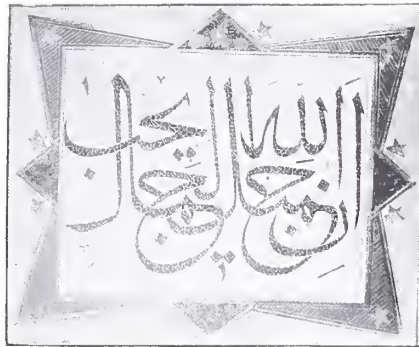 ان الله جميل يحب الجمال